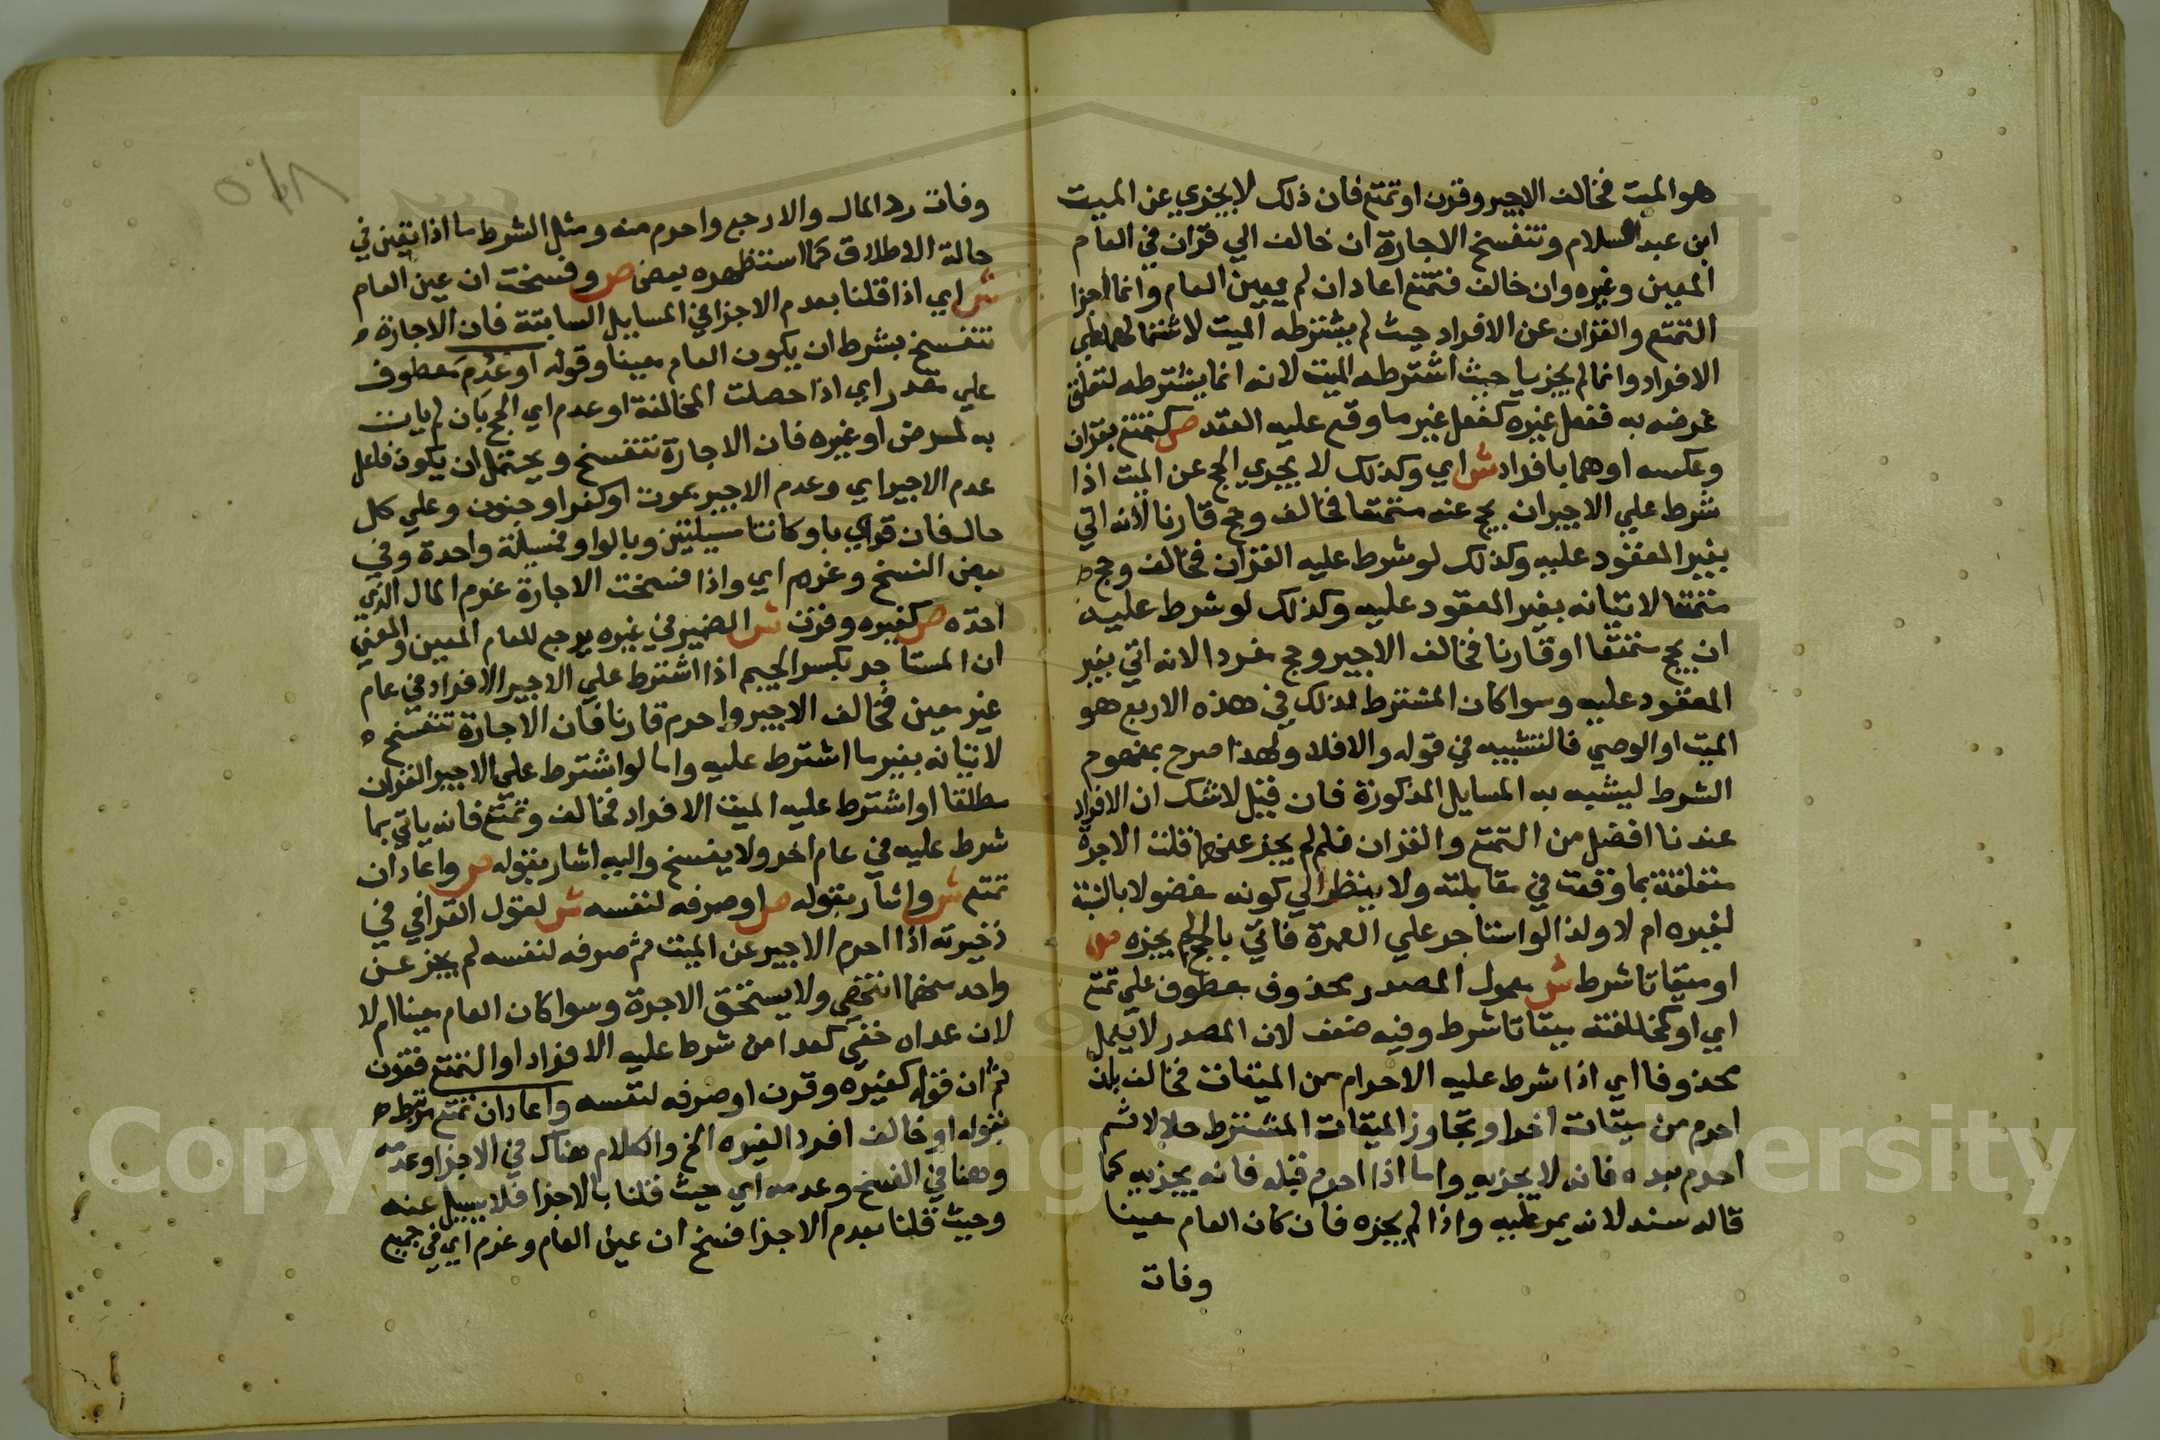 هو الميت فخالف الاجير وقرن او تمتع فان ذلك لا يجزي عن الميت
ابن عبد السلام وتنفسخ الاجارة ان خالف الي قران في العام
المعين وغيره وان خالف فتمتع اعاد ان لم يعين العام وانما اجزا
التمتع والقران عن الافراد حيث لم يشترطه الميت لاشتمالهما علي
الافراد وانما لم يجزيا حيث اشترطه الميت لانه انما يشترطه لتعلق
غرضه به ففعل غيره كفعل غير ما وقع عليه العقد ص كتمتع بقران
وعكسه او هما بافراد ش اي وكذلك لا يجزي الحج عن الميت اذا
شرط علي الاجير ان يحج عنه متمتعا فخالف وحج قارنا لانه اتي
بغير المعقود عليه وكذلك لو شرط عليه القران فخالف وحج
متمتعا لاتيانه بغير المعقود عليه وكذلك لو شرط عليه
ان يحج متمتعا او قارنا فخالف الاجير وحج مفردا لانه اتي بغير
المعقود عليه وسوا كان المشترط لذلك في هذه الاربع هو
الميت او الوصي فالتشبيه في قوله والا فلا ولهذا صرح بمفهوم
الشرط ليشبه به المسايل المذكورة فان قيل لا شك ان الافراد
عندنا افضل من التمتع والقران فلم لم يجز عنهما قلت الاجرة
متعلقة بما وقعت في مقابلته ولا ينظر الي كونه مفضولا بالنسبة
لغيره ام لا ولذا لو استاجر علي العمرة فاتي بالحج لم يجزه ص
او ميقاتا شرط ش معمول المصدر محذوف معطوف علي تمتع
اي او كمخالفته ميقاتا شرط وفيه ضعف لان المصدر لا يعمل
محذوفا اي اذا شرط عليه الاحرام من الميقات فخالف بان
احرم من ميقات اخر او تجاوز الميقات المشترط حلالا ثم
احرم بعده فانه لا يجزيه واما اذا احرم قبله فانه يجزيه كما
قاله سند لانه يمر عليه واذا لم يجزه فان كان العام معينا
وفات
وفات رد المال والا رجع واحرم منه ومثل الشرط ما اذا تعين في
حالة الاطلاق كما استظهره بعض ص وفسخت ان عين العام
ش اي اذا قلنا بعدم الاجزا في المسايل السابقة فان الاجارة
تنفسخ بشرط ان يكون العام معينا وقوله او عدم معطوف
علي مقدر اي اذا حصلت المخالفة او عدم اي الحج بان لم يات
به لمرض او غيره فان الاجارة تنفسخ ويحتمل ان يكون فاعل
عدم الاجير اي وعدم الاجير بموت او كفر او جنون وعلي كل
حال فان قراي باو كانتا مسيلتين وبالواو فمسيلة واحدة وفي
بعض النسخ وغرم اي واذا فسخت الاجارة غرم المال الذي
اخذه ص كغيره وقرن ش الضمير في غيره يرجع للعام المعين والمعني
ان المستاجر بكسر الجيم اذا اشترط علي الاجير الافراد في عام
غير معين فخالف الاجير واحرم قارنا فان الاجارة تنفسخ
لاتيانه بغير ما اشترط عليه واما لو اشترط علي الاجير القران
مطلقا او اشترط عليه الميت الافراد فخالف وتمتع فانه ياتي بما
شرط عليه في عام اخر ولا يفسخ واليه اشار بقوله ص واعاد ان
تمتع ش واشار بقوله ص او صرفه لنفسه ش لقول القرافي في
ذخيرته اذا احرم الاجير عن الميت ثم صرفه لنفسه لم يجز عن
واحد منهما انتهي ولا يستحق الاجرة وسوا كان العام معينا ام لا
لان عداه خفي كعدا من شرط عليه الافراد او التمتع فقرن
ثم ان قوله كغيره وقرن او صرفه لنفسه واعاد ان تمتع مرتبط
بقوله او خالف افرد الغيره الخ والكلام هناك في الاجزا وعدمه
وهنا في الفسخ وعدمه اي حيث قلنا بالاجزا فلا يسيل عنه
وحيث قلنا بعدم الاجزا فسخ ان عين العام وغرم اي في جميع